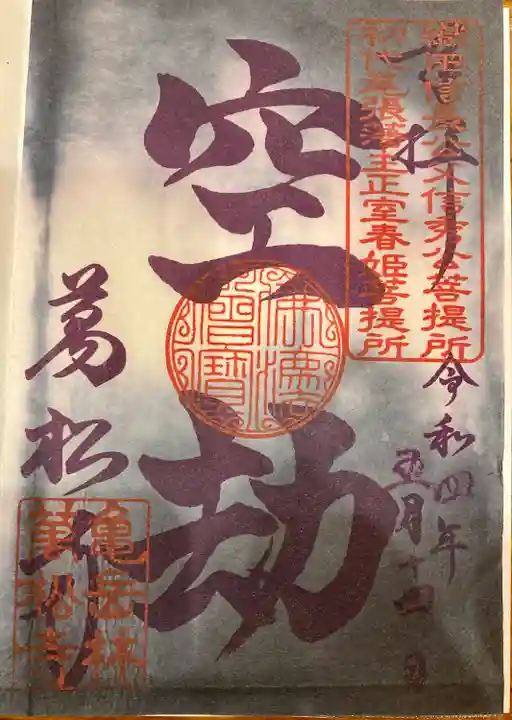 奉拝
織田信長公父信秀公菩提所
初代尾張藩主正室春姫菩提所
令和四年
月十四日
空劫
佛法
僧寶
萬松寺
亀岳林
萬松寺